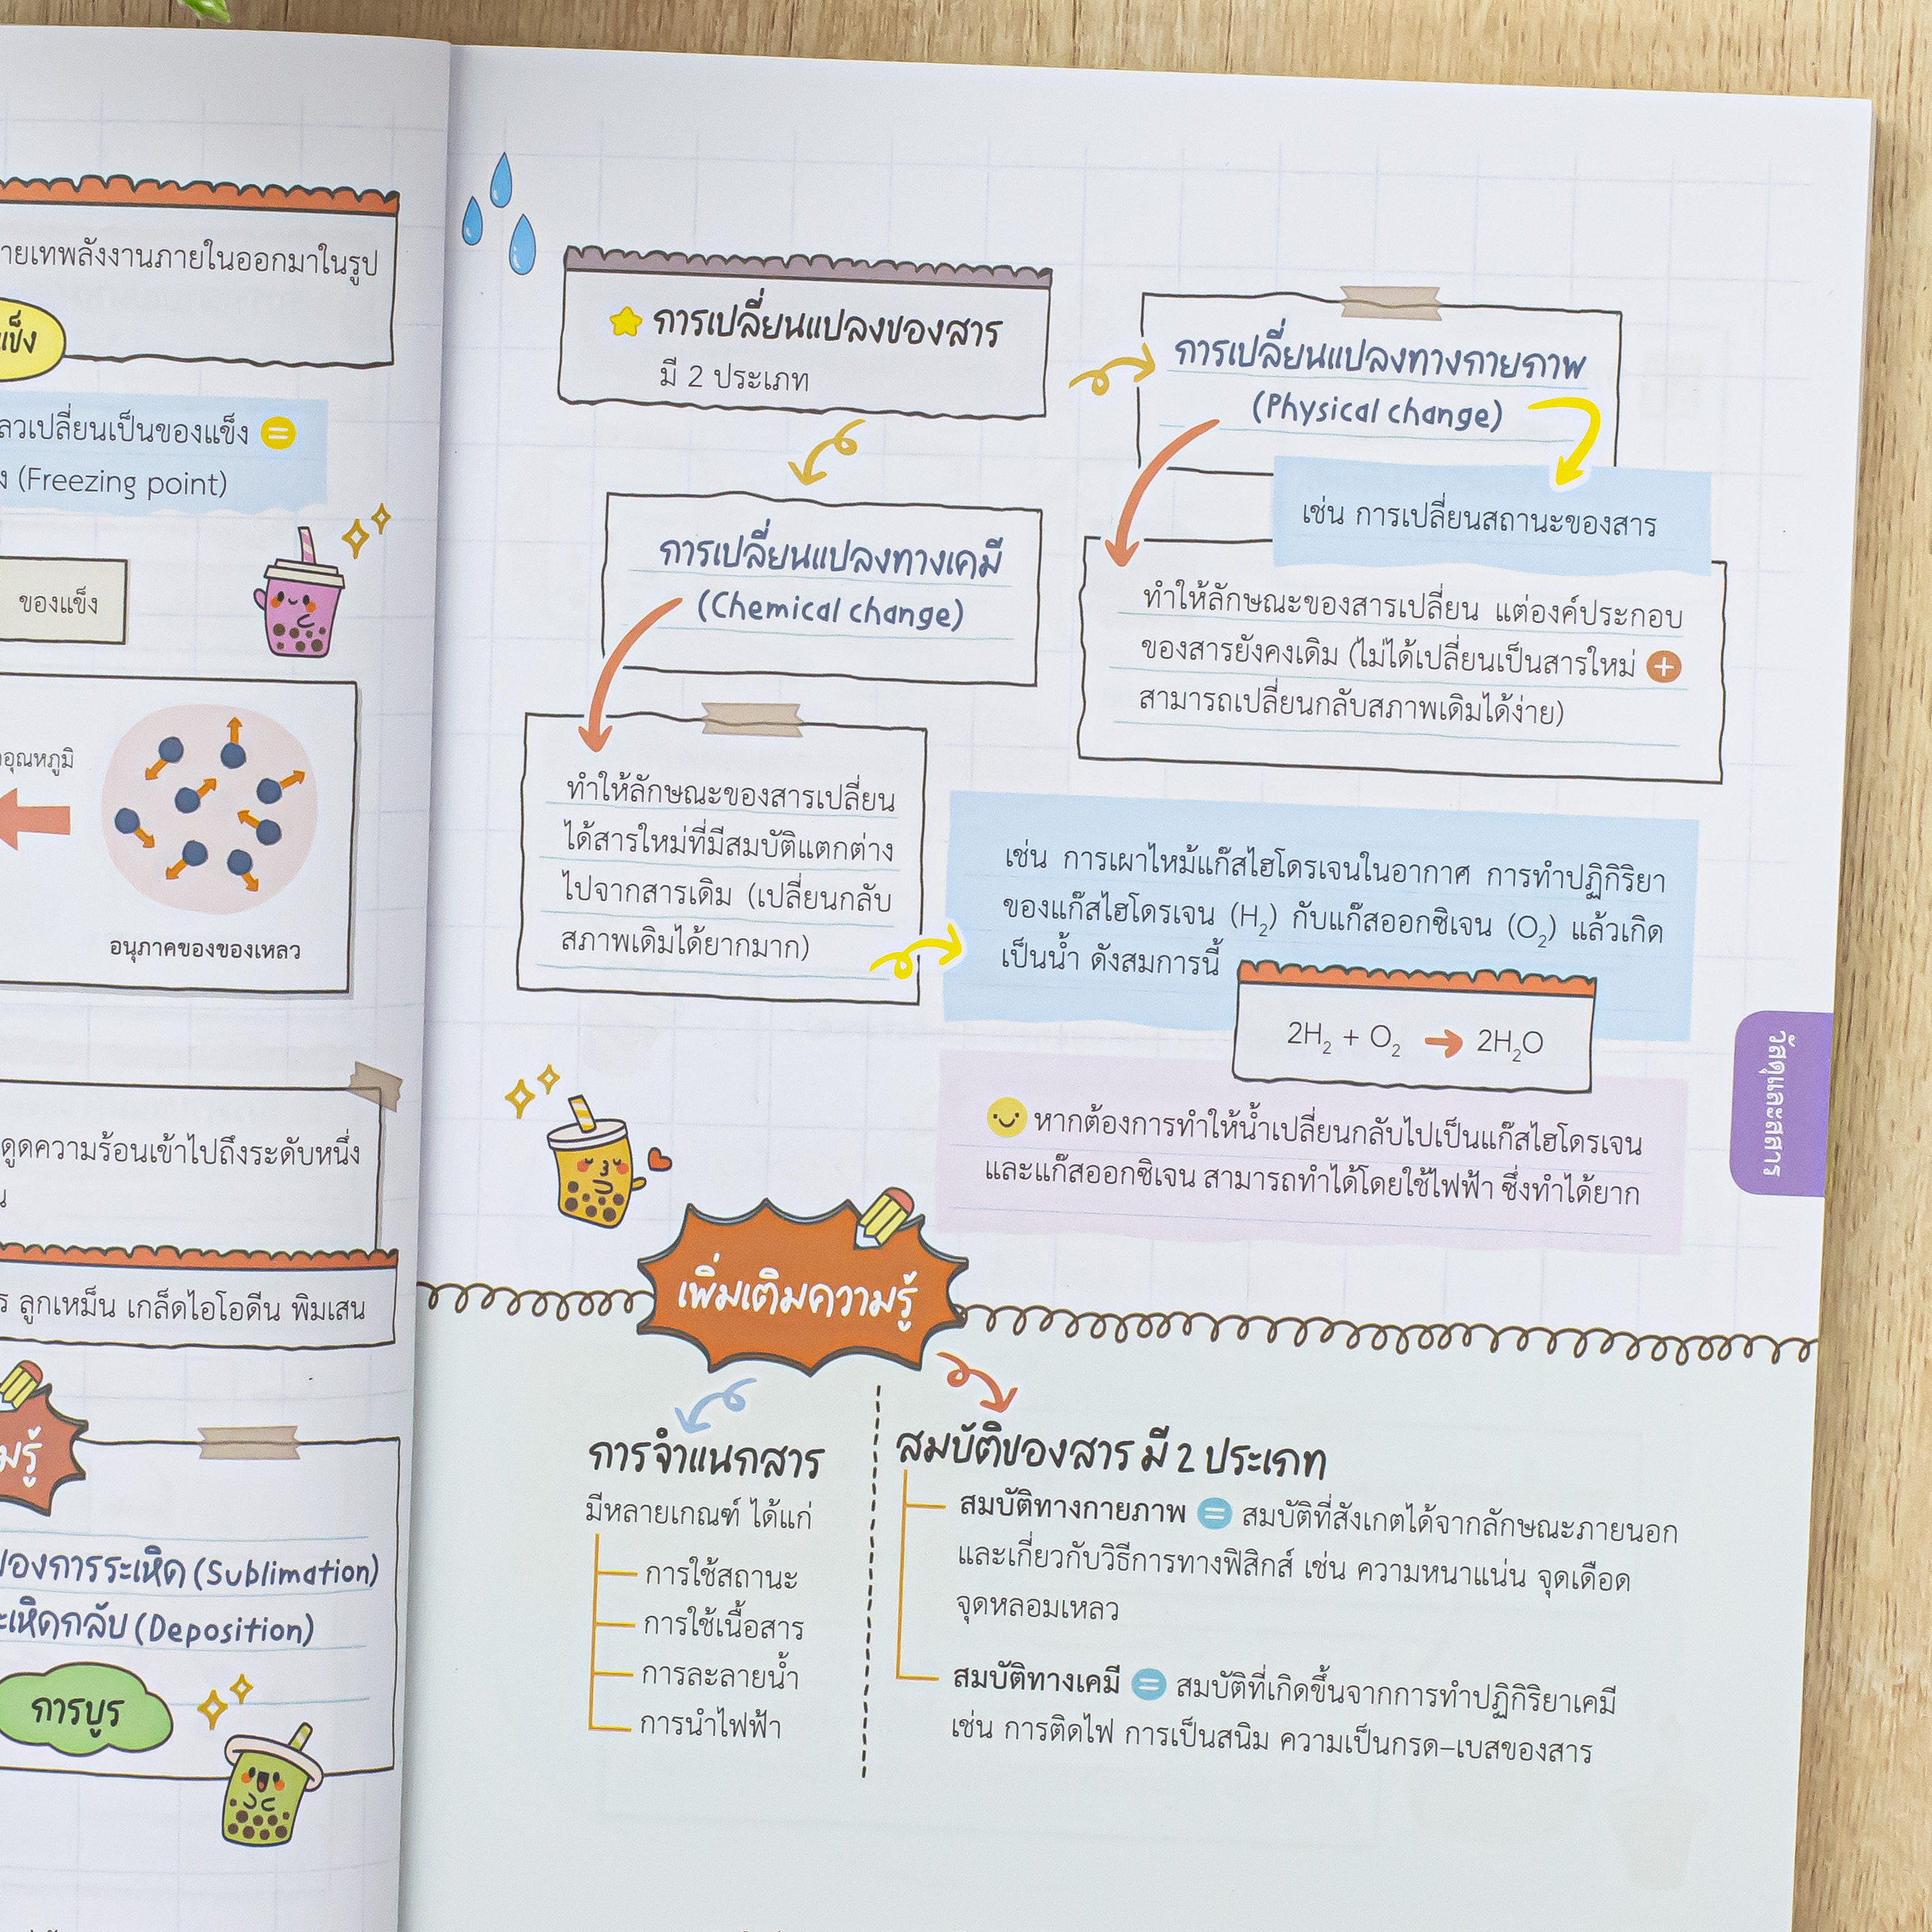 พลังงานภายในออกมาในรูป
เปลี่ยนเป็นของแข็ง =
(Freezing point)
ของแข็ง
อุณหภูมิ
อนุภาคของของเหลว
ดูดความร้อนเข้าไปถึงระดับหนึ่ง
ลูกเหม็น เกล็ดไอโอดีน พิมเสน
ของการระเหิด (Sublimation)
(Deposition)
การบูร
การเปลี่ยนแปลงของสาร
มี 2 ประเภท
การเปลี่ยนแปลงทางกายภาพ
(Physical change)
เช่น การเปลี่ยนสถานะของสาร
ทำให้ลักษณะของสารเปลี่ยน แต่องค์ประกอบ
ของสารยังคงเดิม (ไม่ได้เปลี่ยนเป็นสารใหม่ +
สามารถเปลี่ยนกลับสภาพเดิมได้ง่าย)
การเปลี่ยนแปลงทางเคมี
(Chemical change)
ทำให้ลักษณะของสารเปลี่ยน
ได้สารใหม่ที่มีสมบัติแตกต่าง
ไปจากสารเดิม (เปลี่ยนกลับ
สภาพเดิมได้ยากมาก)
เช่น การเผาไหม้แก๊สไฮโดรเจนในอากาศ การทำปฏิกิริยา
ของแก๊สไฮโดรเจน (H₂) กับแก๊สออกซิเจน (O₂) แล้วเกิด
เป็นน้ำ ดังสมการนี้
2H₂ + O₂ → 2H₂O
หากต้องการทำให้น้ำเปลี่ยนกลับไปเป็นแก๊สไฮโดรเจน
และแก๊สออกซิเจน สามารถทำได้โดยใช้ไฟฟ้า ซึ่งทำได้ยาก
วัสดุและสสาร
เพิ่มเติมความรู้
การจำแนกสาร
มีหลายเกณฑ์ ได้แก่
การใช้สถานะ
การใช้เนื้อสาร
การละลายน้ำ
การนำไฟฟ้า
สมบัติของสาร มี 2 ประเภท
สมบัติทางกายภาพ = สมบัติที่สังเกตได้จากลักษณะภายนอก
และเกี่ยวกับวิธีการทางฟิสิกส์ เช่น ความหนาแน่น จุดเดือด
จุดหลอมเหลว
สมบัติทางเคมี = สมบัติที่เกิดขึ้นจากการทำปฏิกิริยาเคมี
เช่น การติดไฟ การเป็นสนิม ความเป็นกรด–เบสของสาร